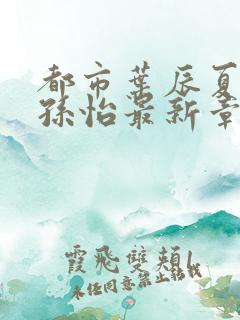 都市葉辰夏
孫怡最新章
霞飛雙頰
未经同意禁止转载